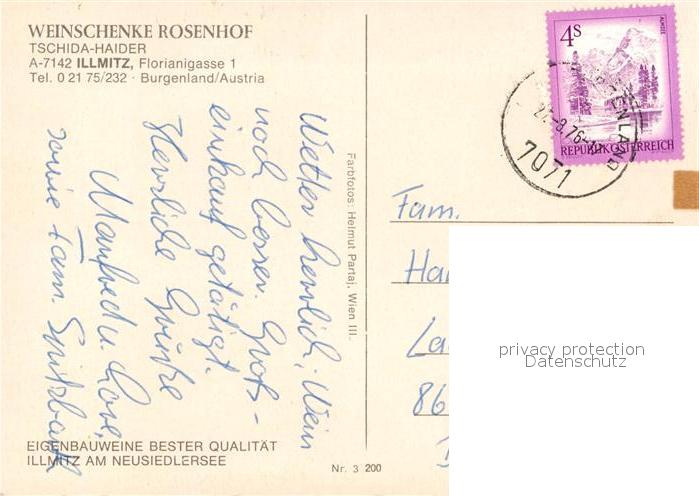 WEINSCHENKE ROSENHOF
TSCHIDA-HAIDER
A-7142 ILLMITZ, Florianigasse 1
Tel. 0 21 75/232 · Burgenland/Austria
Wetter herrlich, Wein
noch besser. Groß-
einkauf getätigt.
Herzliche Grüße
Manfred u. Lore,
sowie Fam.
EIGENBAUWEINE BESTER QUALITÄT
ILLMITZ AM NEUSIEDLERSEE
Farbfotos: Helmut Partaj, Wien III.
Nr. 3 200
4 S
ALMSEE
REPUBLIK ÖSTERREICH
7071
Fam.
Ha
La
86
privacy protection
Datenschutz